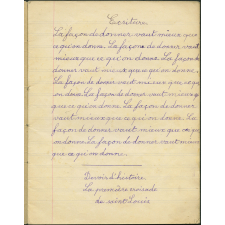 Ecriture
La façon de donner vaut mieux que
ce qu'on donne. La façon de donner vaut
mieux que ce qu'on donne. La façon de
donner vaut mieux que ce qu'on donne.
La façon de donner vaut mieux que ce qu'
on donne. La façon de donner vaut mieux
que ce qu'on donne. La façon de donner
vaut mieux que ce qu'on donne. La
façon de donner vaut mieux que ce qu'
on donne. La façon de donner vaut mieux
que ce qu'on donne.
Devoir d'histoire
La première croisade
de saint Louis